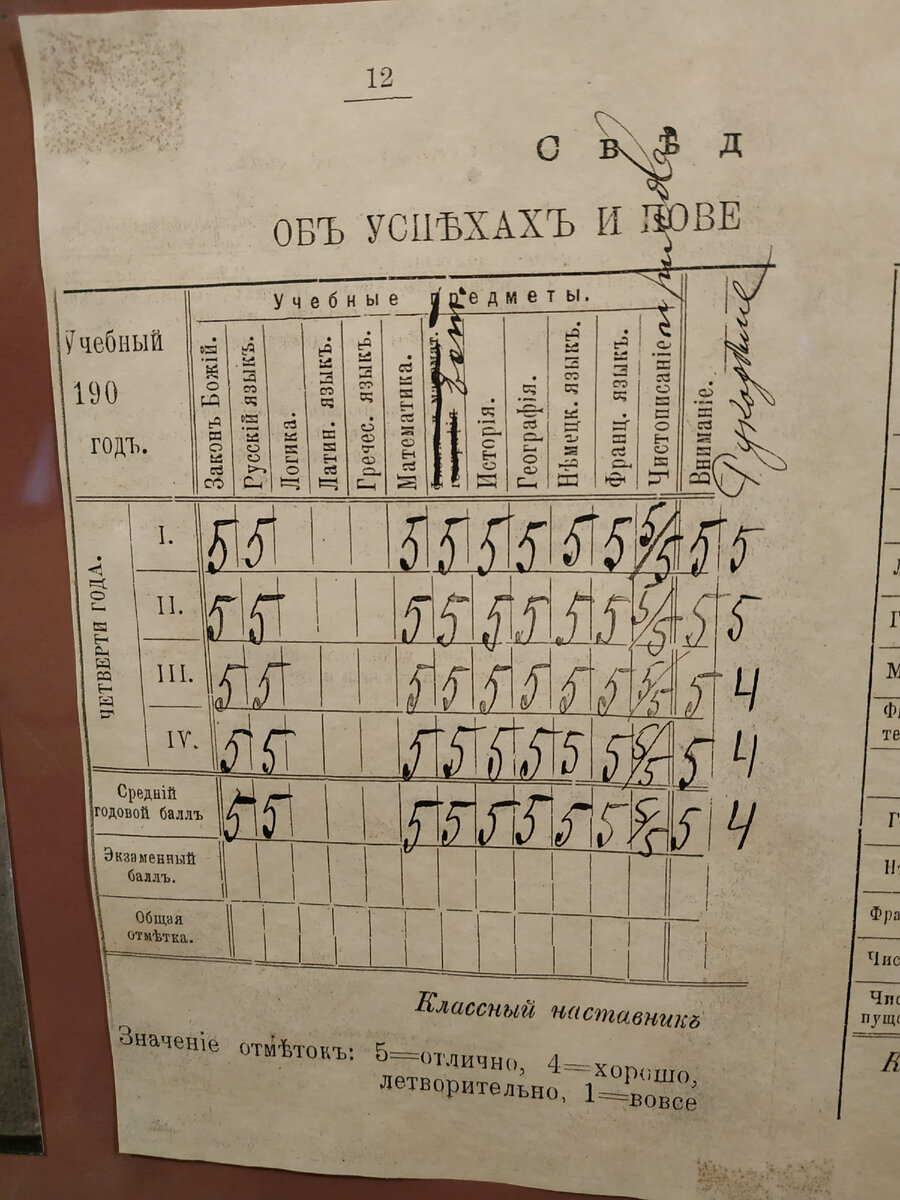 12
СВѢД
ОБЪ УСПѢХАХЪ И ПОВЕ
Учебный
190
годъ.
Учебные предметы.
Законъ Божій.
Русскій языкъ.
Логика.
Латин. языкъ.
Гречес. языкъ.
Математика.
Исторія.
Географія.
Нѣмецк. языкъ.
Франц. языкъ.
Чистописаніе
Вниманіе.
Рукодѣліе
ЧЕТВЕРТИ ГОДА.
I. 5 5 5 5 5 5 5 5 5/5 5 5
II. 5 5 5 5 5 5 5 5 5/5 5 5
III. 5 5 5 5 5 5 5 5 5/5 5 4
IV. 5 5 5 5 5 5 5 5 5/5 5 4
Средній
годовой баллъ 5 5 5 5 5 5 5 5 5/5 5 4
Экзаменный
баллъ.
Общая
отмѣтка.
Классный наставникъ
Значеніе отмѣтокъ: 5=отлично, 4=хорошо,
летворительно, 1=вовсе
Г
М
Фи
те
Г
Фра
Чис
Чис
пуще
К